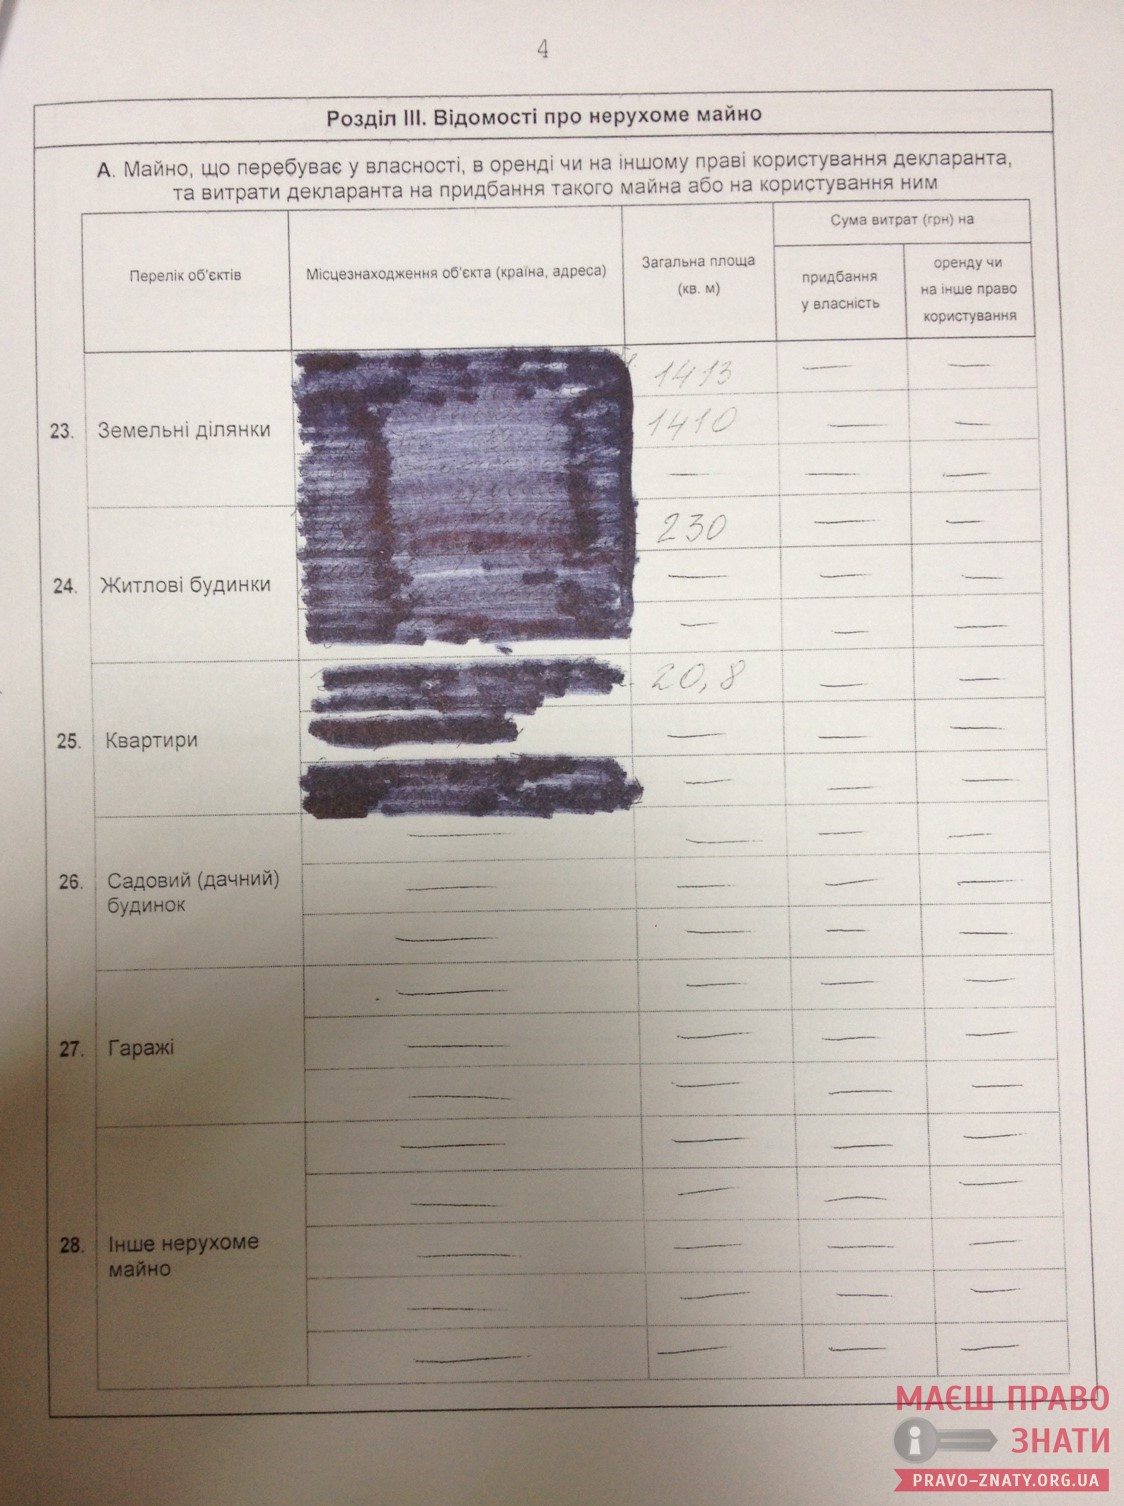 4
Розділ III. Відомості про нерухоме майно
А. Майно, що перебуває у власності, в оренді чи на іншому праві користування декларанта,
та витрати декларанта на придбання такого майна або на користування ним
Перелік об'єктів
Місцезнаходження об'єкта (країна, адреса)
Загальна площа
(кв. м)
Сума витрат (грн) на
придбання
у власність
оренду чи
на інше право
користування
23. Земельні ділянки
1413 — —
1410 — —
— — —
24. Житлові будинки
230 — —
— — —
— — —
25. Квартири
20,8 — —
— — —
— — —
26. Садовий (дачний)
будинок
— — — —
— — — —
— — — —
27. Гаражі
— — — —
— — — —
— — — —
28. Інше нерухоме
майно
— — — —
— — — —
— — — —
— — — —
— — — —
МАЄШ ПРАВО
ЗНАТИ
PRAVO-ZNATY.ORG.UA